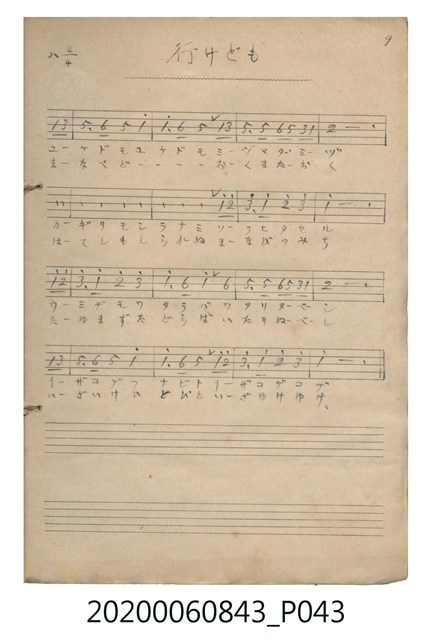 9
ハ 4/4 行けども
13 5.6 5 1 1.6 5 13 5.5 65 31 2 — ·
ユー ケドモ ユケドモ ミー ヅ マタ ミー ヅ
まー なべ どー ー ー ー おー く また おー く
12 3.1 2 3 1 — ·
カー ギリ モ シ ラナミ ソー ラ ヒタセル
はー てしも しられぬ まー なびの みち
12 3.1 2 3 1.6 1 6 5.5 65 31 2 — ·
ウー ミナモ ワタラバ ワタリ ターベーシ
たー ゆまず たどらば いたりねーべーし
13 5.6 5 1 1.6 5 12 3.1 2 3 1 — ·
イー ザコゲ
いー ざいけひとびと いー ざゆけゆけ
20200060843_P043